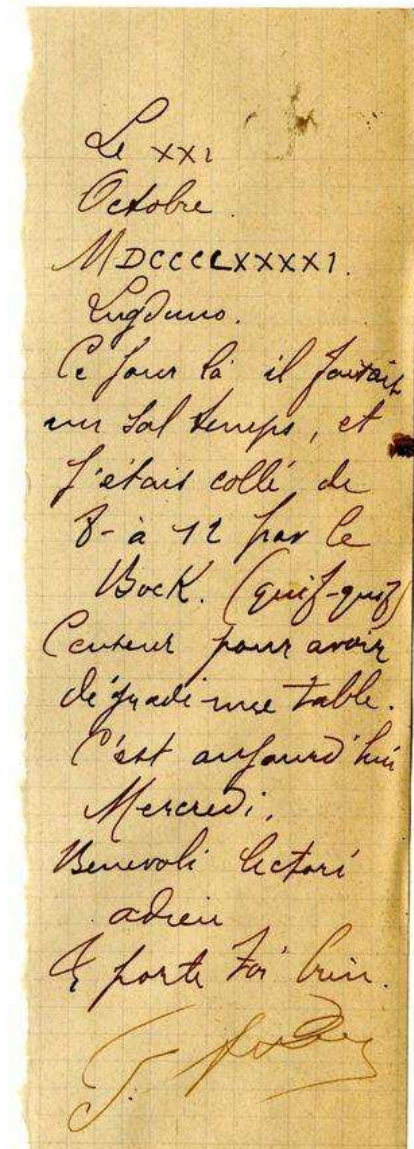 Le XXI
Octobre.
MDCCCLXXXXI.
Lugduno.
Ce jour là il foutait
un sal temps, et
j'étais collé de
8- à 12 par le
Bock. (quif-quif)
Censeur pour avoir
dégradé une table.
C'est aujourd'hui
Mercredi.
Benevoli lectori
adieu
& porte toi bien.
J.